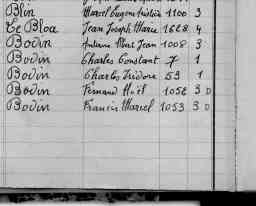 Blin Marcel Eugène 1100 3
Le Bloa Jean Joseph Marie 1628 4
Bodin Antoine Albert Jean 1008 3
Bodin Charles Constant 7 1
Bodin Charles Isidore 59 1
Bodin Fernand Noël 1052 3 D
Bodin Francis Marcel 1053 3 D